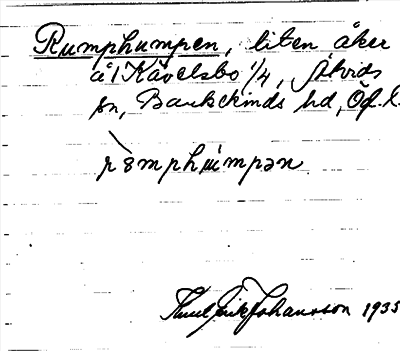 Rumphumpen, liten åker
å Kävelsbo 1/4, Åtvids
sn, Bankekinds hd, Ög. l.
Knut Erik Johansson 1935